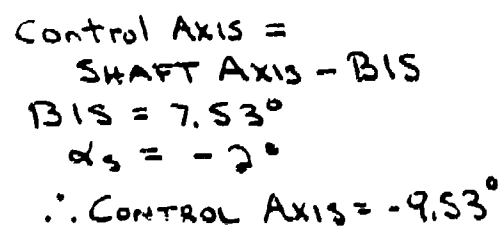 Control Axis =
SHAFT AXIS - BIS
BIS = 7.53°
αs = -2°
∴ CONTROL AXIS = -9.53°